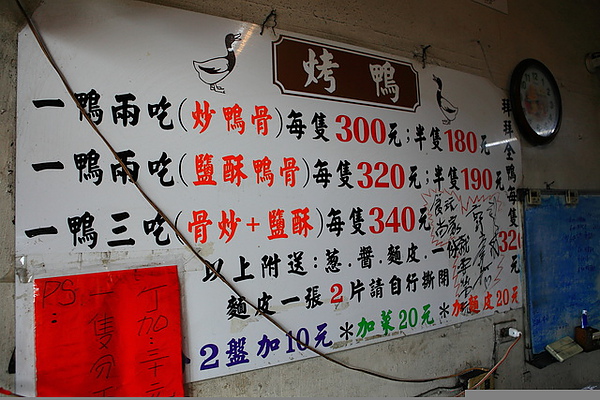 烤鴨
一鴨兩吃(炒鴨骨)每隻300元;半隻180元
一鴨兩吃(鹽酥鴨骨)每隻320元;半隻190元
一鴨三吃(骨炒+鹽酥)每隻340元
以上附送:蔥.醬.麵皮.一份
麵皮一張2片請自行撕開
2盤加10元*加菜20元*加麵皮20元
拜拜全鴨每隻320元
PS:
一隻勿丁
丁加:三十元